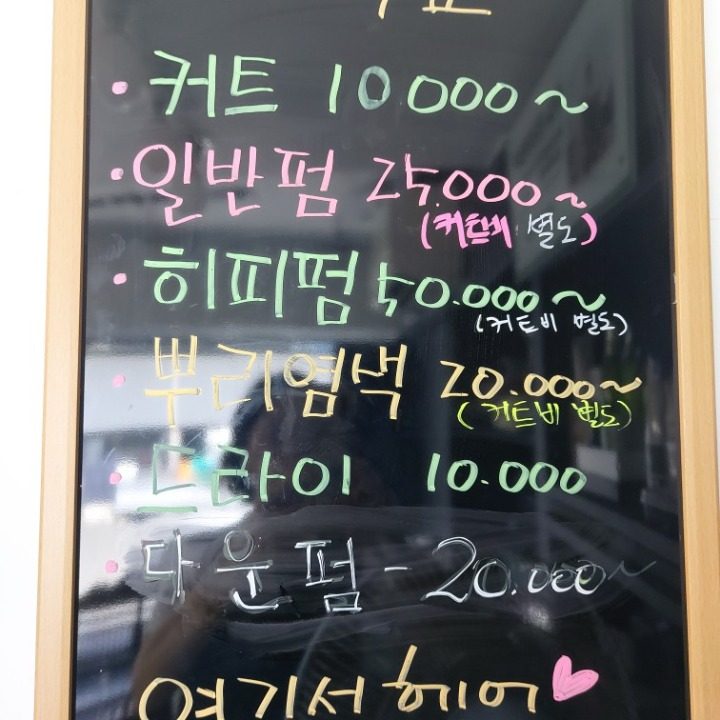 커트 10000~
일반펌 25.000~
(커트비 별도)
히피펌 50.000~
(커트비 별도)
뿌리염색 20.000~
(커트비 별도)
드라이 10.000
다운펌 - 20.000~
여기서 헤어